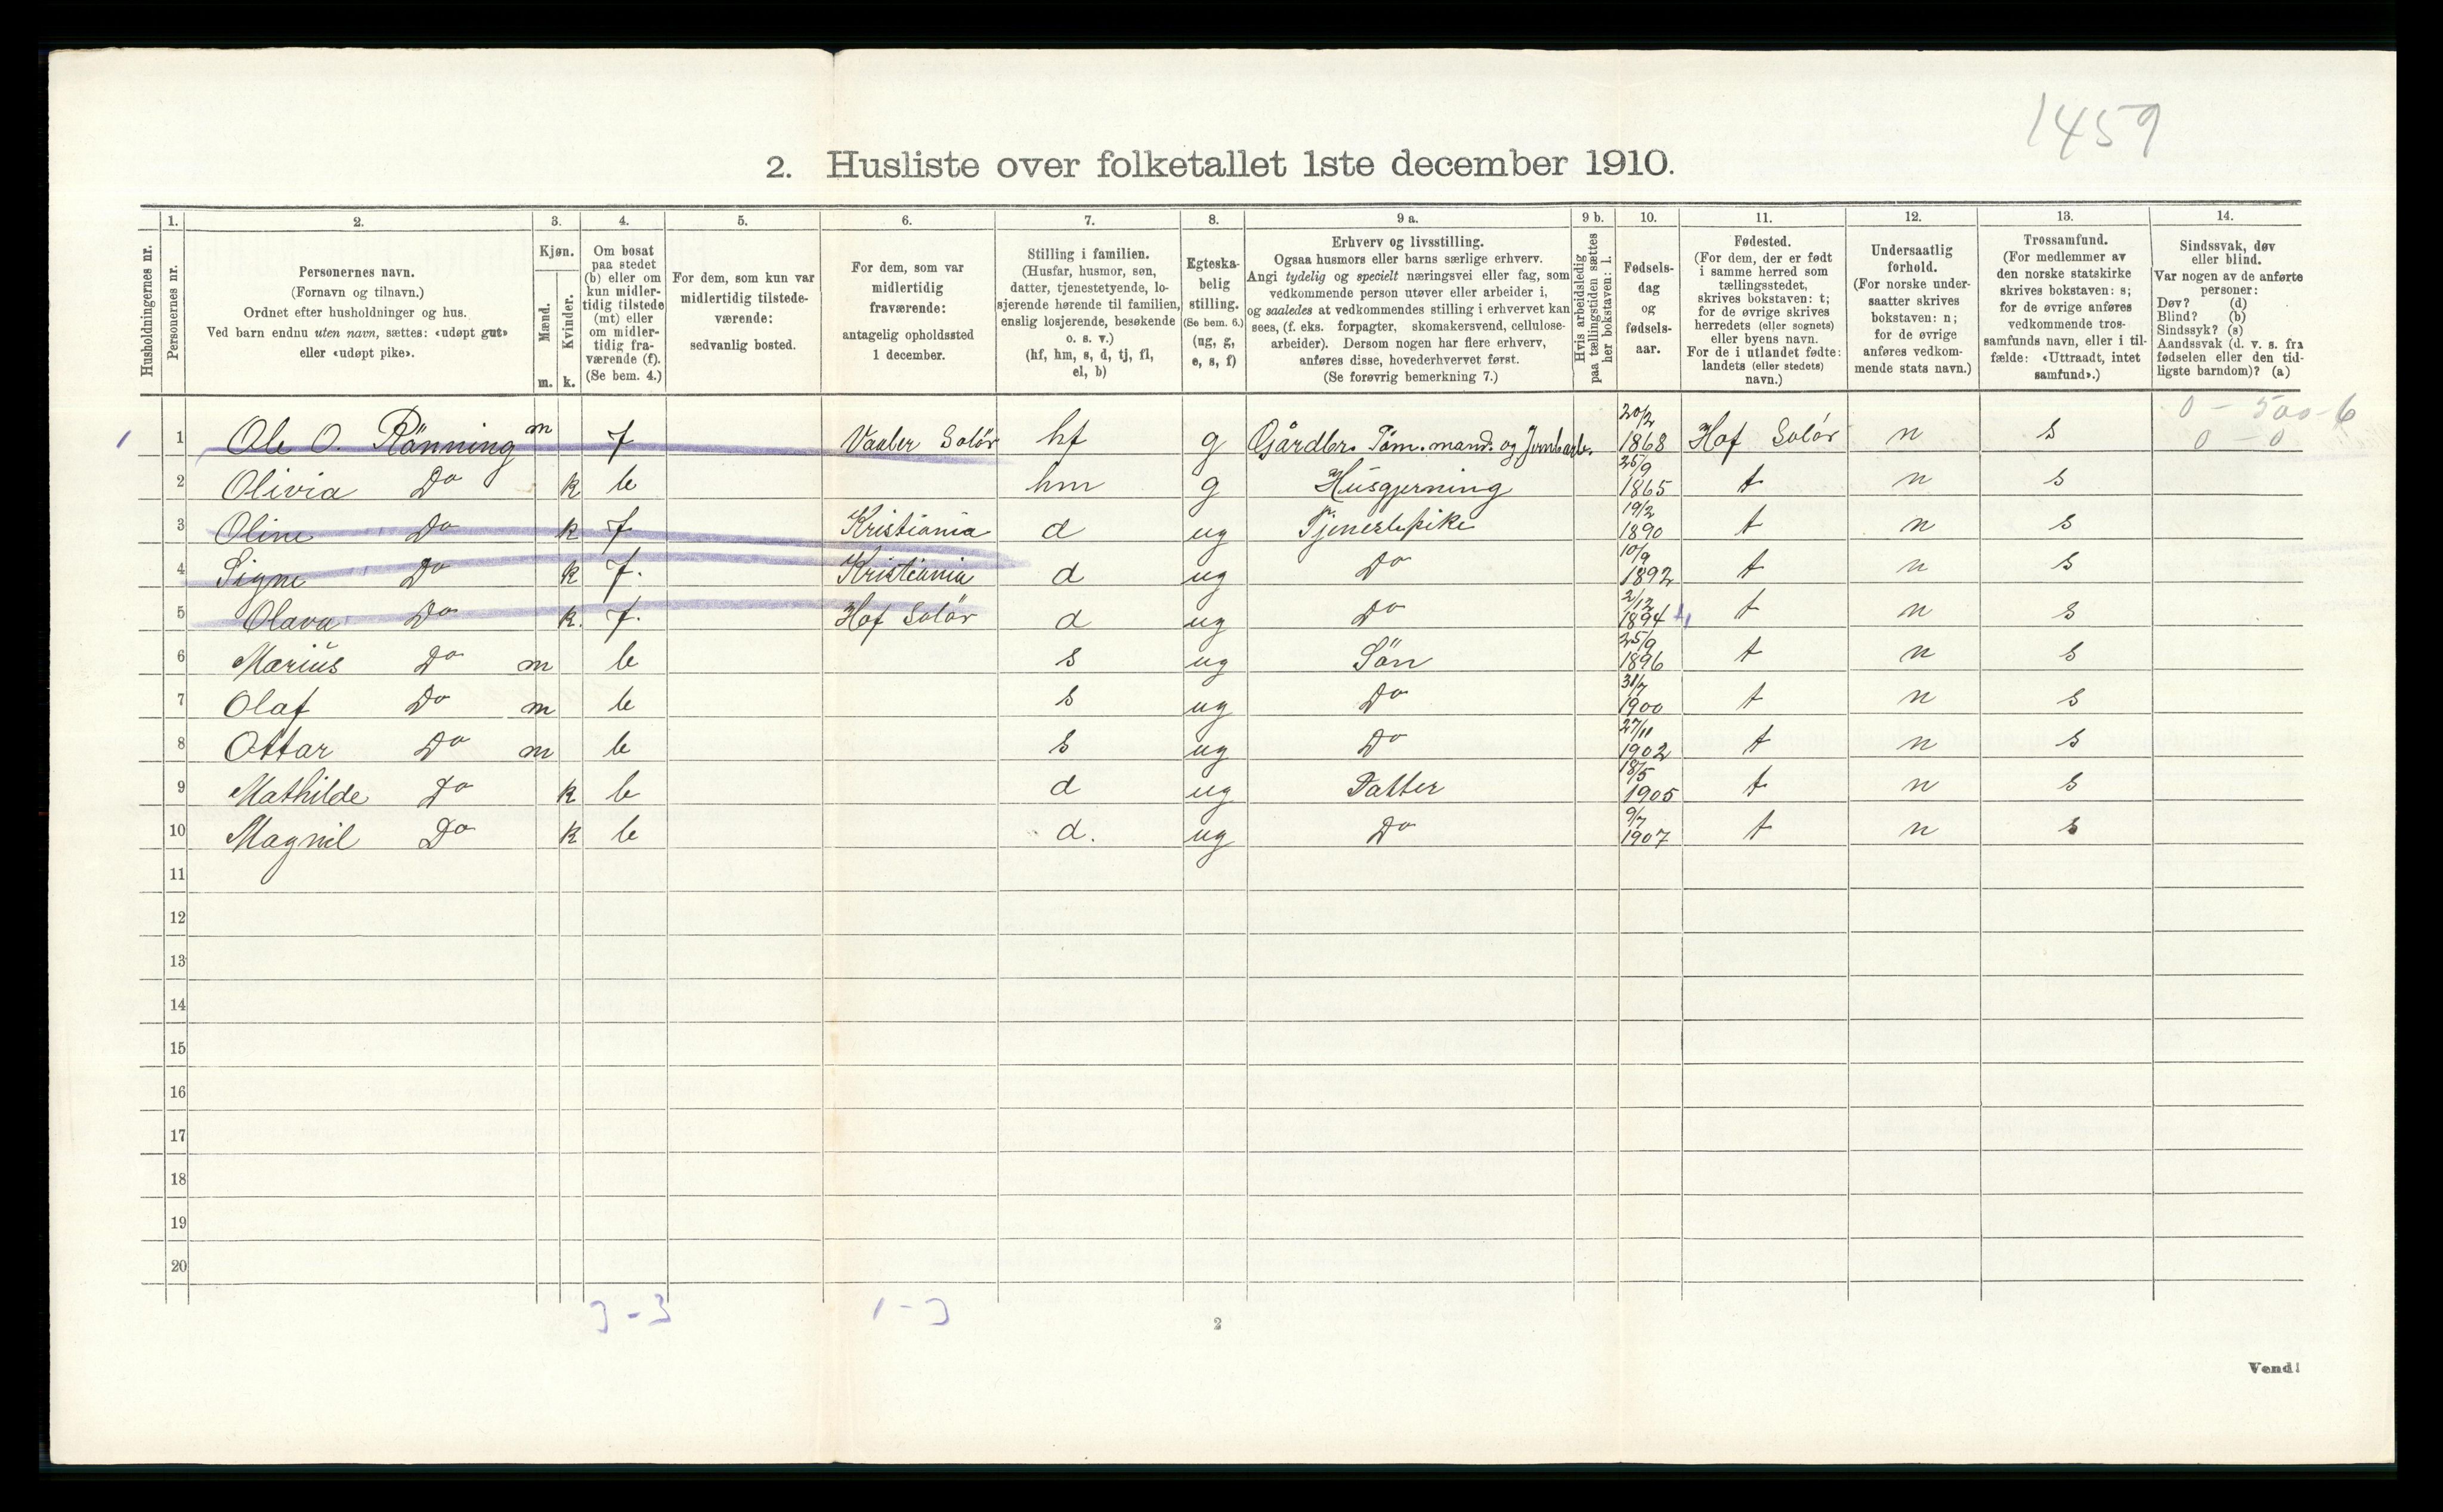 1459
2. Husliste over folketallet 1ste december 1910.
Husholdningernes nr.
1.
Personernes nr.
2.
Personernes navn.
(Fornavn og tilnavn.)
Ordnet efter husholdninger og hus.
Ved barn endnu uten navn, sættes: «udøpt gut»
eller «udøpt pike».
3.
Kjøn.
Mænd.
m.
Kvinder.
k.
4.
Om bosat
paa stedet
(b) eller om
kun midler-
tidig tilstede
(mt) eller
om midler-
tidig fra-
værende (f).
(Se bem. 4.)
5.
For dem, som kun var
midlertidig tilstede-
værende:
sedvanlig bosted.
6.
For dem, som var
midlertidig
fraværende:
antagelig opholdssted
1 december.
7.
Stilling i familien.
(Husfar, husmor, søn,
datter, tjenestetyende, lo-
sjerende hørende til familien,
enslig losjerende, besøkende
o. s. v.)
(hf, hm, s, d, tj, fl,
el, b)
8.
Egteska-
belig
stilling.
(Se bem. 6.)
(ug, g,
e, s, f)
9 a.
Erhverv og livsstilling.
Ogsaa husmors eller barns særlige erhverv.
Angi tydelig og specielt næringsvei eller fag, som
vedkommende person utøver eller arbeider i,
og saaledes at vedkommendes stilling i erhvervet kan
sees, (f. eks. forpagter, skomakersvend, cellulose-
arbeider). Dersom nogen har flere erhverv,
anføres disse, hovederhvervet først.
(Se forøvrig bemerkning 7.)
9 b.
Hvis arbeidsledig
paa tællingstiden sættes
her bokstaven: l.
10.
Fødsels-
dag
og
fødsels-
aar.
11.
Fødested.
(For dem, der er født
i samme herred som
tællingsstedet,
skrives bokstaven: t;
for de øvrige skrives
herredets (eller sognets)
eller byens navn.
For de i utlandet fødte:
landets (eller stedets)
navn.)
12.
Undersaatlig
forhold.
(For norske under-
saatter skrives
bokstaven: n;
for de øvrige
anføres vedkom-
mende stats navn.)
13.
Trossamfund.
(For medlemmer av
den norske statskirke
skrives bokstaven: s;
for de øvrige anføres
vedkommende tros-
samfunds navn, eller i til-
fælde: «Uttraadt, intet
samfund».)
14.
Sindssvak, døv
eller blind.
Var nogen av de anførte
personer:
Døv? (d)
Blind? (b)
Sindssyk? (s)
Aandssvak (d. v. s. fra
fødselen eller den tid-
ligste barndom)? (a)
0 - 500 - 6
0 - 0
1 1 Ole O. Rönning m f Vaaler Solör hf g Gårdbr. Töm.mand. og Jernb.arb. 20/2 1868 Hof Solör n s
2 Olivia Do k b hm g Husgjerning 25/9 1865 t n s
3 Oline Do k f Kristiania d ug Tjenestepike 19/2 1890 t n s
4 Signe Do k f. Kristiania d ug Do 10/9 1892 t n s
5 Olava Do k. f. Hof Solör d ug Do 2/12 1894 t n s
6 Marius Do m b s ug Sön 25/9 1896 t n s
7 Olaf Do m b s ug Do 31/7 1900 t n s
8 Ottar Do m b s ug Do 27/11 1902 t n s
9 Mathilde Do k b d ug Datter 18/5 1905 t n s
10 Magnil Do k b d. ug Do 9/7 1907 t n s
11
12
13
14
15
16
17
18
19
20
3 - 3 1 - 3
2
Vend!